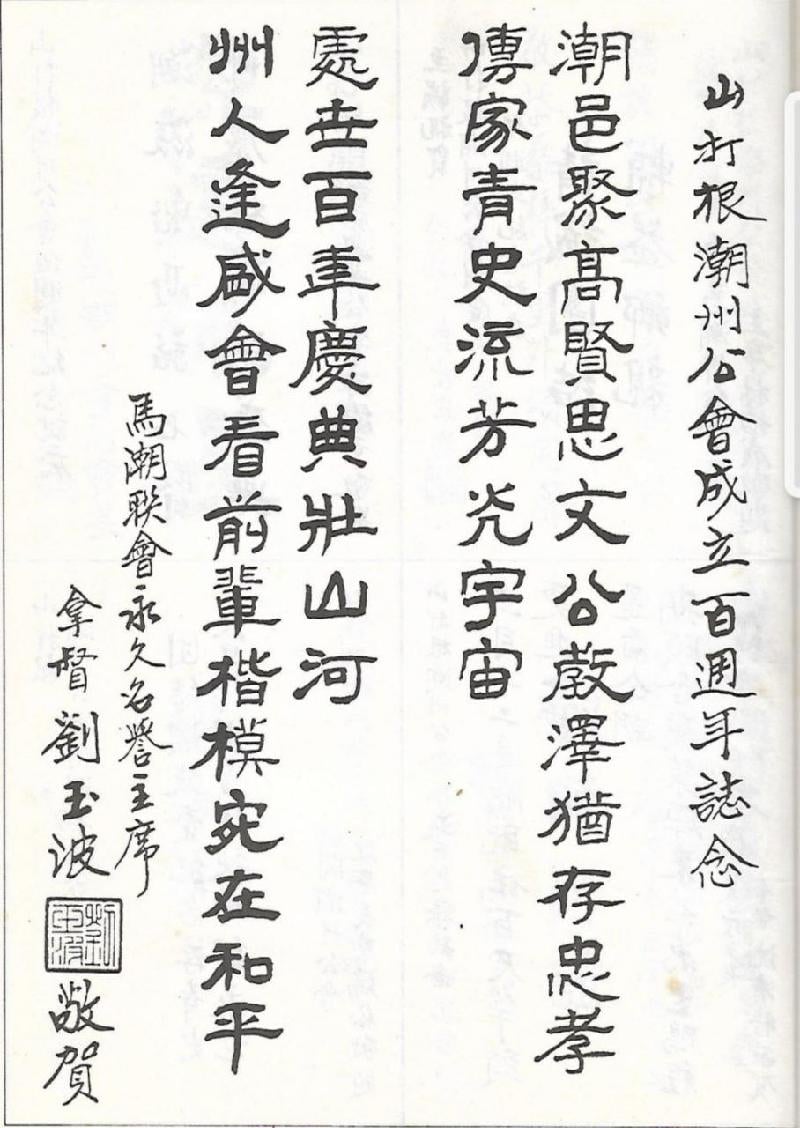 山打根潮州公會成立百週年誌念
潮邑聚高賢思文公教澤猶存忠孝
傳家青史流芳光宇宙
州人逢盛會看前輩楷模宛在和平
處世百年慶典壯山河
馬潮聯會永久名譽主席
拿督劉玉波
劉玉波
敬賀